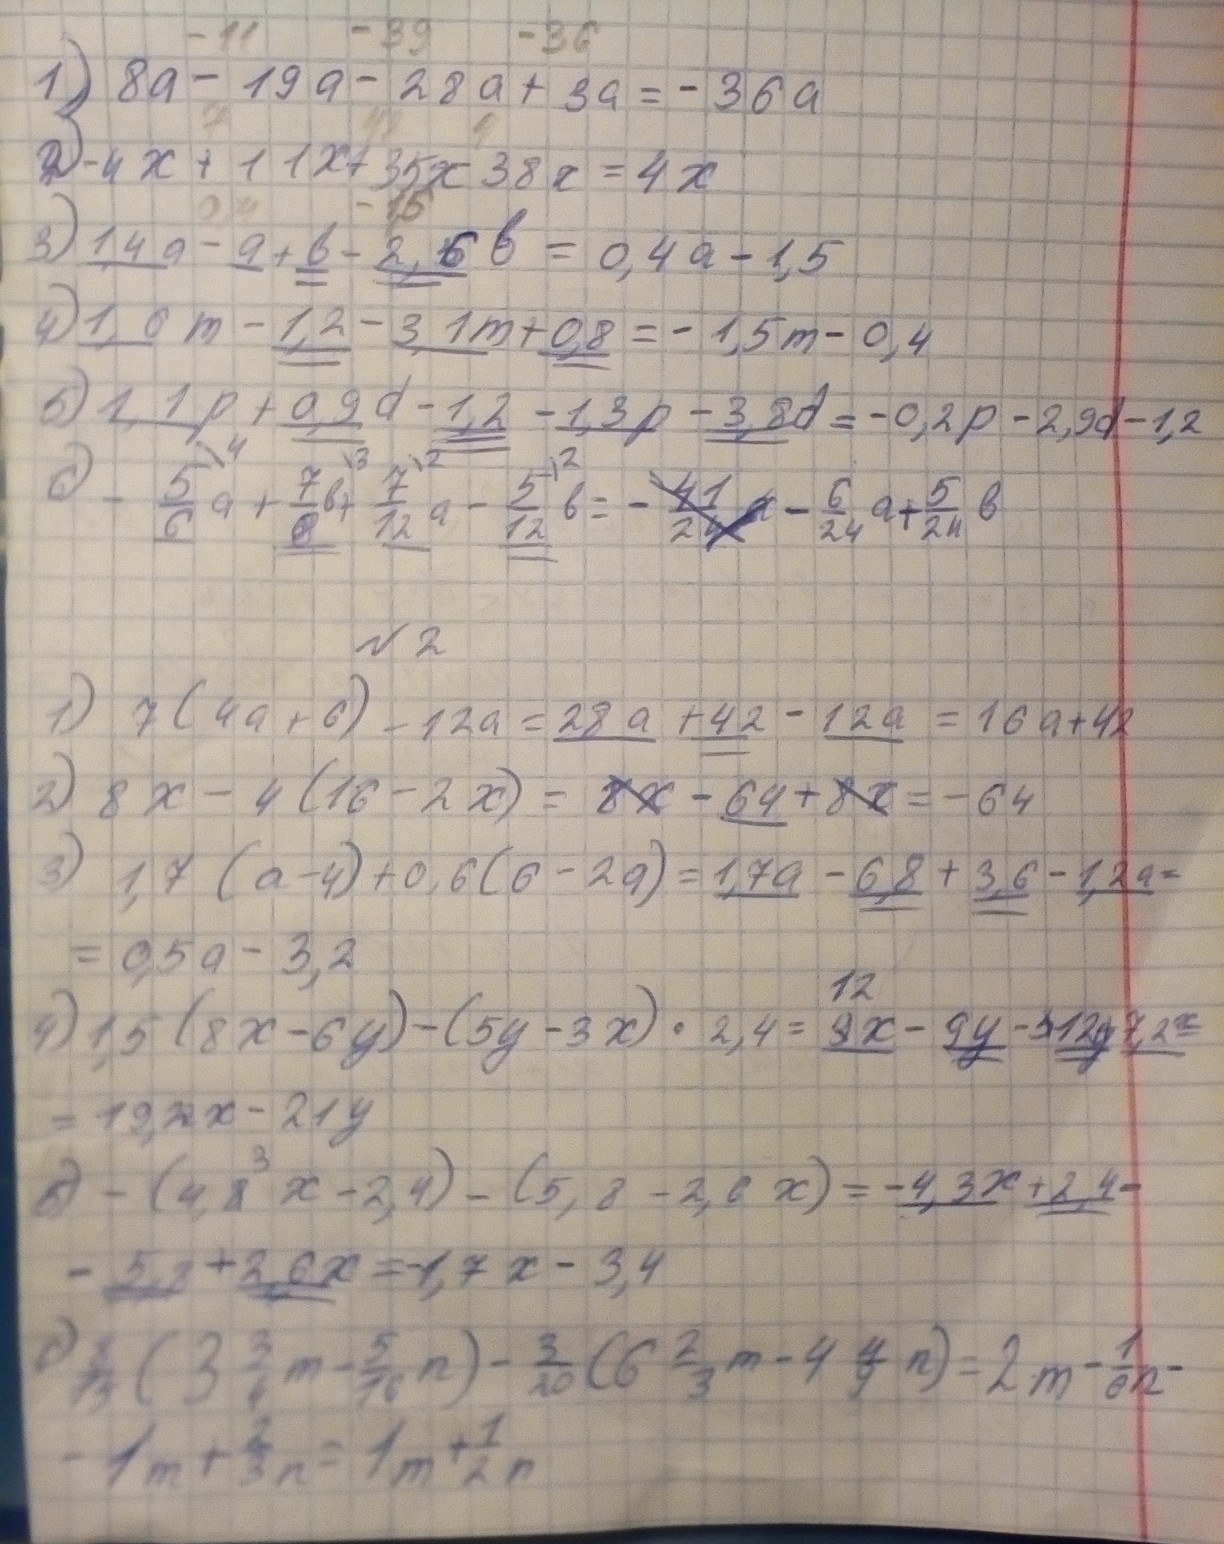 -11 -39 -36
1) 8a - 19a - 28a + 3a = -36a
7 4
2) -4x + 11x + 35x - 38x = 4x
0,4 -1,5
3) 1,4a - a + b - 2,6b = 0,4a - 1,5
4) 1,6m - 1,2 - 3,1m + 0,8 = -1,5m - 0,4
5) 1,1p + 0,9d - 1,2 - 1,3p - 3,8d = -0,2p - 2,9d - 1,2
6) - 5/6\4 a + 7/8\3 b + 7/12\2 a - 5/12\2 b = - 41/24 x - 6/24 a + 5/24 b
№2
1) 7(4a + 6) - 12a = 28a + 42 - 12a = 16a + 42
2) 8x - 4(16 - 2x) = 8x - 64 + 8x = -64
3) 1,7(a - 4) + 0,6(6 - 2a) = 1,7a - 6,8 + 3,6 - 1,2a =
= 0,5a - 3,2
12
4) 1,5(8x - 6y) - (5y - 3x) · 2,4 = 9x - 9y - 12y 7,2x =
= 19,2x - 21y
5) - (4,8 3 x - 2,4) - (5,8 - 2,6x) = -4,3x + 2,4 -
- 5,8 + 2,6x = -1,7x - 3,4
6) 8/15 (3 3/4 m - 5/16 n) - 3/20 (6 2/3 m - 4 4/9 n) = 2m - 1/6 n -
- 1m + 2/3 n = 1m + 1/2 n